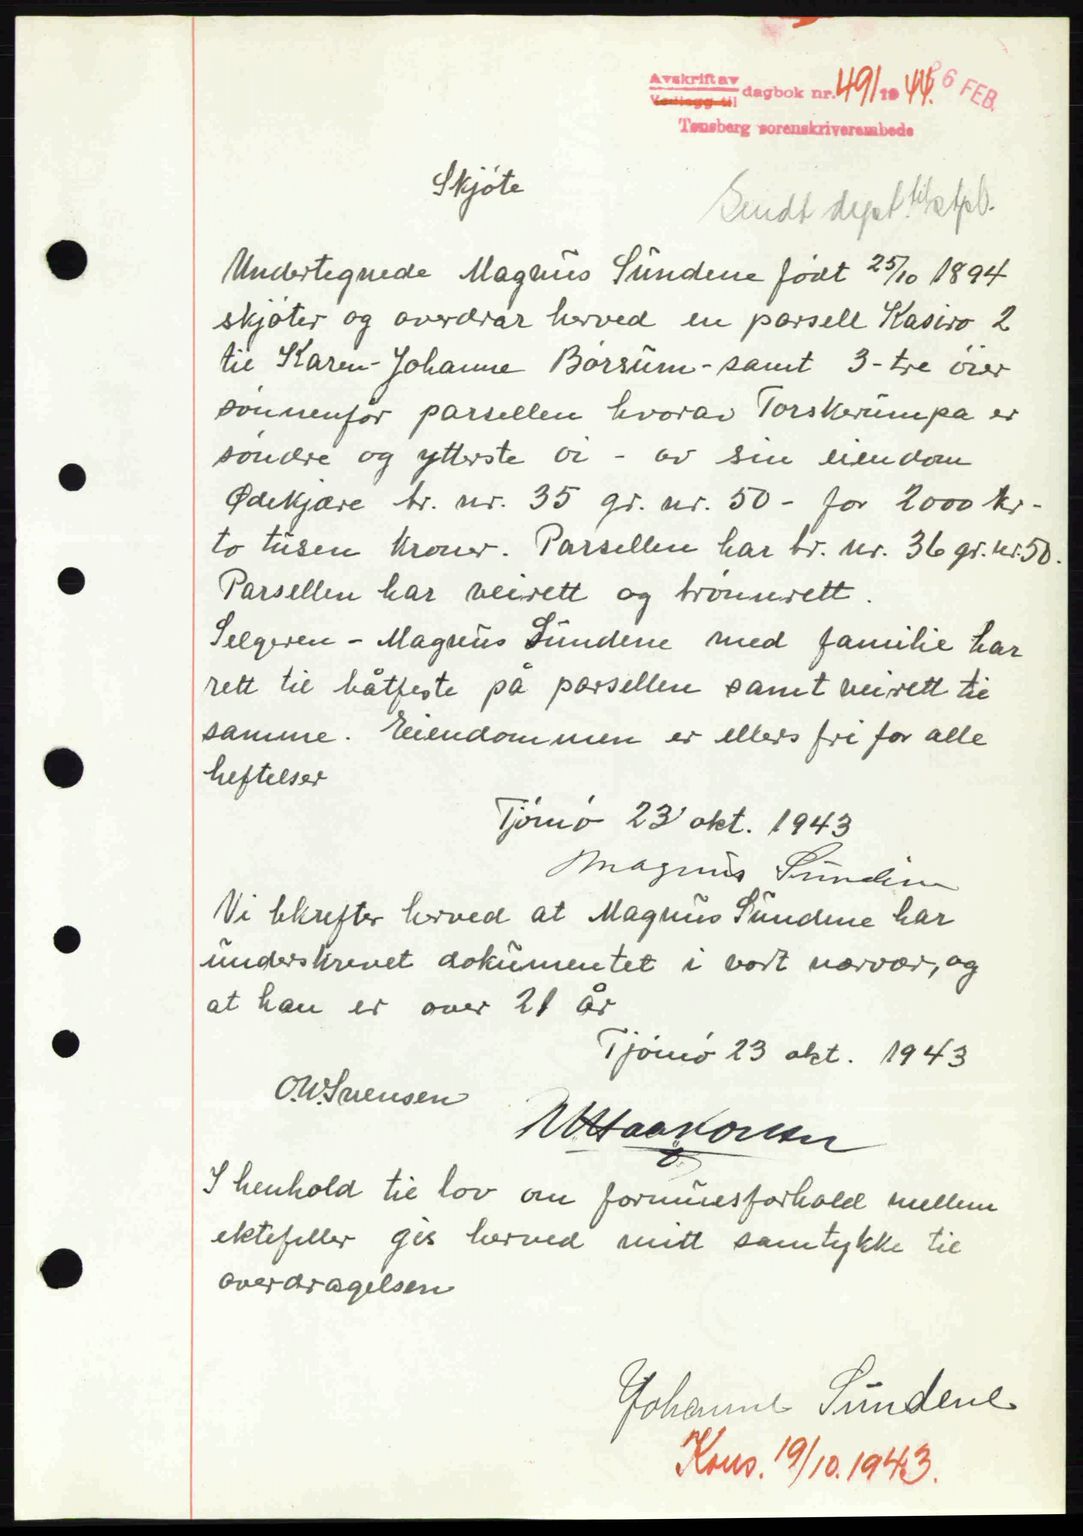 Avskrift av
Vedlegg til dagbok nr. 491 1944.
6 FEB.
Tønsberg sorenskriverembede
Skjøte
Sendt dept. til stpl.
Undertegnede Magnus Sundene født 25/10 1894
skjøter og overdrar herved en parsell Kasiro 2
til Karen-Johanne Børsum - samt 3-tre öier
sønnenfor parsellen hvorav Torskerumpa er
søndre og ytterste öi - av sin eiendom
Ødekjære br. nr. 35 gr. nr. 50 - for 2000 kr -
to tusen kroner. Parsellen har br. nr. 36 gr. nr. 50.
Parsellen har veirett og brønnrett.
Selgeren - Magnus Sundene med familie har
rett til båtfeste på parsellen samt veirett til
samme. Eiendommen er ellers fri for alle
heftelser
Tjømø 23 okt. 1943
Magnus Sundene
Vi bekrefter herved at Magnus Sundene har
underskrevet dokumentet i vort nærvær, og
at han er over 21 år
Tjømø 23 okt. 1943
O.W. Svensen
Haakonsen
I henhold til lov om formuesforhold mellem
ektefeller gis herved mitt samtykke til
overdragelsen
Johanne Sundene
Kons. 19/10. 1943.